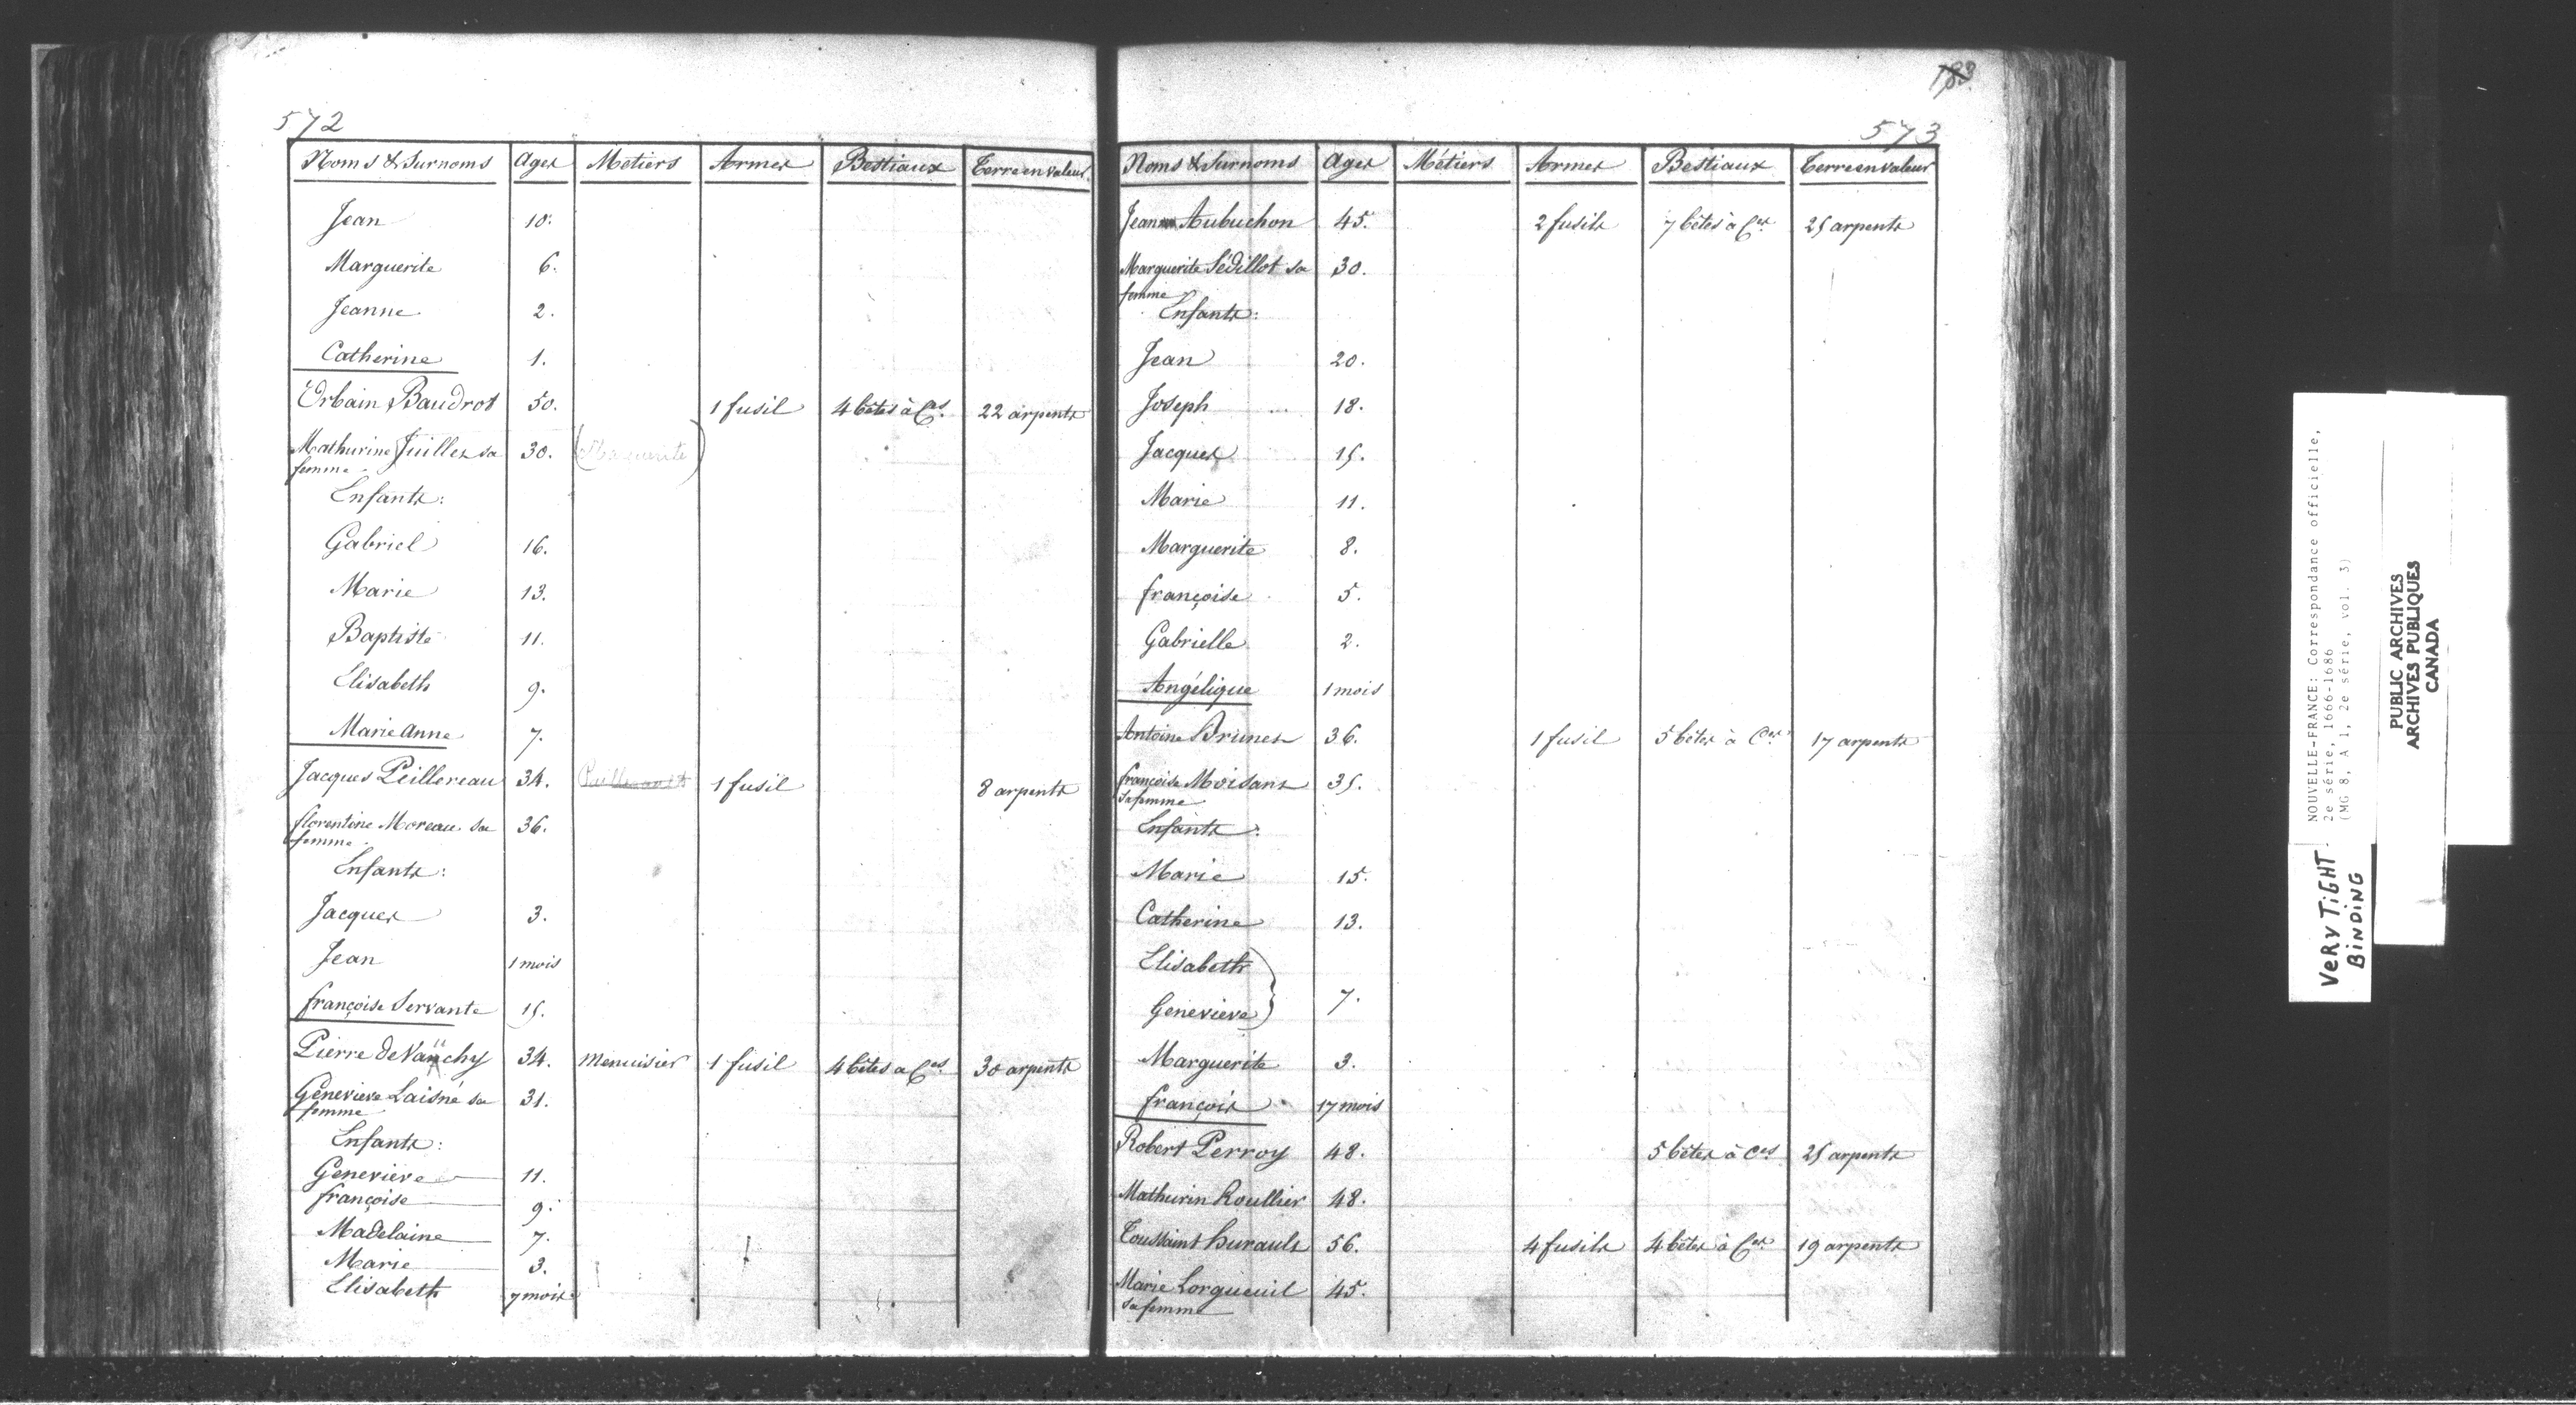 572
Noms & Surnoms Ages Métiers Armes Bestiaux Terre en valeur
Jean 10.
Marguerite 6.
Jeanne 2.
Catherine 1.
Urbain Baudrot 50. 1 fusil 4 bêtes à Ces 22 arpents
Mathurine Juillet sa 30. (Marguerite)
femme
Enfants:
Gabriel 16.
Marie 13.
Baptiste 11.
Elisabeth 9.
Marie Anne 7.
Jacques Peillereau 34. 1 fusil 8 arpents
florentine Moreau sa 36.
femme
Enfants:
Jacques 3.
Jean 1 mois
françoise Servante 15.
Pierre de Vanchy 34. menuisier 1 fusil 4 bêtes a Ces 30 arpents
Geneviève Laisné sa 31.
femme
Enfants:
Geneviève 11.
françoise 9.
Madelaine 7.
Marie 3.
Elisabeth 7 mois
183
573
Noms & Surnoms Ages Métiers Armes Bestiaux Terre en valeur
Jean Aubuchon 45. 2 fusils 7 bêtes à Ces 25 arpents
Marguerite Sédillot sa 30.
femme
Enfants:
Jean 20.
Joseph 18.
Jacques 15.
Marie 11.
Marguerite 8.
françoise 5.
Gabrielle 2.
Angélique 1 mois
Antoine Brunet 36. 1 fusil 5 bêtes à Ces 17 arpents
françoise Moisant 35.
sa femme
Enfants:
Marie 15.
Catherine 13.
Elisabeth
Geneviève } 7.
Marguerite 3.
françois 17 mois
Robert Perroy 48. 5 bêtes à Ces 25 arpents
Mathurin Roullier 48.
Toussaint hurault 56. 4 fusils 4 bêtes à Ces 19 arpents
Marie Lorgueuil 45.
sa femme
NOUVELLE-FRANCE: Correspondance officielle,
2e série, 1666-1686
(MG 8, A 1, 2e série, vol. 3)
VERY TiGHT
BiNDiNG
PUBLIC ARCHIVES
ARCHIVES PUBLIQUES
CANADA